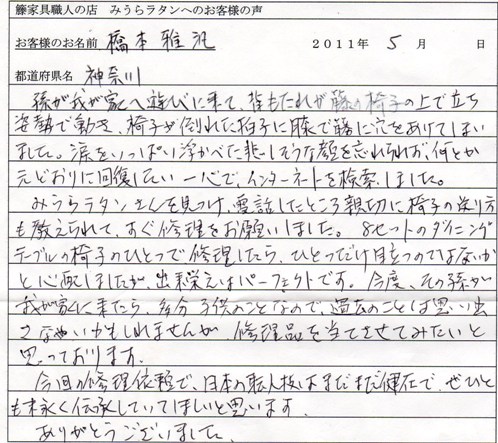 籐家具職人の店 みうらラタンへのお客様の声
お客様のお名前 橋本雅 2011年 5 月 日
都道府県名 神奈川
孫が我が家へ遊びに来て、背もたれが籐の椅子の上で立ち
姿勢で動き、椅子が倒れた拍子に膝で籐に穴をあけてしまい
ました。涙をいっぱい浮かべた悲しそうな顔を忘れられず、何とか
元どおりに回復したい一心で、インターネットを検索しました。
みうらラタンさんを見つけ、電話したところ親切に椅子の送り方
も教えられて、すぐ修理をお願いしました。8セットのダイニング
テーブルの椅子のひとつで修理したら、ひとつだけ目立つのではないか
と心配しましたが、出来栄えはパーフェクトです。今度、その孫が
我が家に来たら、多分子供のことなので、過去のことは思い出
さないかもしれませんが、修理品を当てさせてみたいと
思っております。
今回の修理依頼で、日本の職人技はまだまだ健在で、ぜひと
も末永く伝承していてほしいと思います。
ありがとうございました。